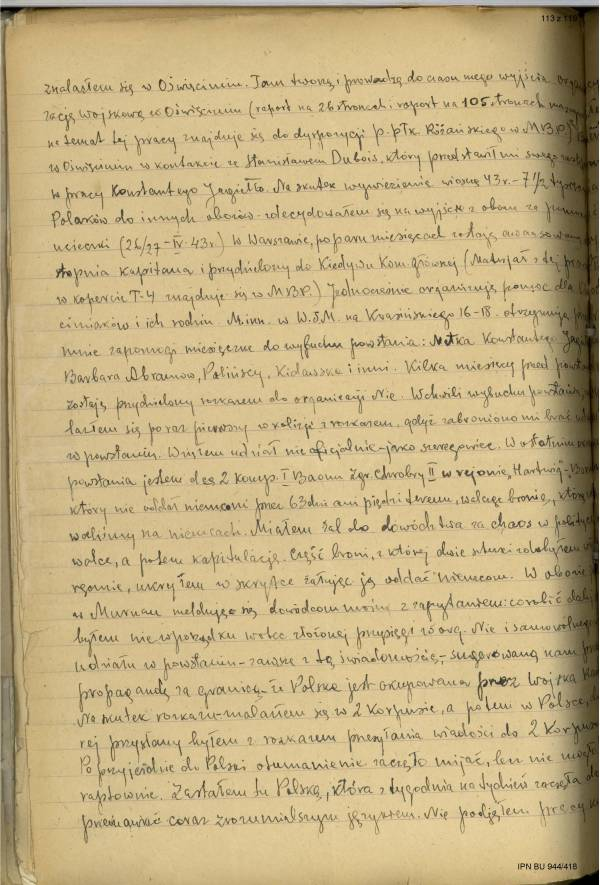 113 z 119
znalazłem się w Oświęcimiu. Tam tworzę i prowadzę do czasu mego wyjścia organi
zację wojskową w Oświęcimiu (raport na 26 stronach i raport na 105 stronach maszyn
na temat tej pracy znajduje się do dyspozycji p. płk. Różańskiego w M.B.P.)
w Oświęcimiu w kontakcie ze Stanisławem Dubois, który przedstawił mi swego zast
w pracy Konstantego Jagiełło. Na skutek wywiezienia wiosną 43r. - 7 1/2 tysiąca
Polaków do innych obozów zdecydowałem się na wyjście z obozu za pomocą
ucieczki (26/27 - IV. 43r.) W Warszawie, po paru miesiącach zostaję awansowany do
stopnia kapitana i przydzielony do Kiedywu Kom. Głównej (Materjał z tej pracy
w kopercie T-4 znajduje się w M.B.P.) Jednocześnie organizuję pomoc dla Oświę
cimiaków i ich rodzin. M.inn. w W.S.M. na Krasińskiego 16-18. otrzymują przeze
mnie zapomogi miesięczne do wybuchu powstania: Matka Konstantego Jagiełły
Barbara Abramow, Polińscy, Kidawska i inni. Kilka miesięcy przed powstan
zostaję przydzielony rozkazem do organizacji Nie. W chwili wybuchu powstania, zna
lazłem się po raz pierwszy w kolizji z rozkazem, gdyż zabroniono mi brać udział
w powstaniu. Wziąłem udział nieoficjalnie - jako szeregowiec. W ostatnim okresie
powstania jestem dcą 2 komp. I Baonu Zgr. Chrobry II w rejonie "Hartwig"
który nie oddał niemcom przez 63 dni ani piędzi terenu, walcząc bronią, którą zdo
waliśmy na niemcach. Miałem żal do dowództwa za chaos w polityce
walce, a potem kapitulację. Część broni, z której dwie sztuki zdobyłem
ręcznie, ukryłem w skrytce żałując ją oddać Niemcom. W obozie
w Murnau melduję się dowódcom moim z zapytaniem: co robić dalej
byłem nie w porządku wobec złożonej przysięgi w org. Nie i samowolnego
udziału w powstaniu - zawsze z tą świadomością, - sugerowaną nam przez
propagandę za granicą - że Polska jest okupowana przez wojska
Na skutek rozkazu - znalazłem się w 2 Korpusie, a potem w Polsce, do któ
rej przysłany byłem z rozkazem przesyłania wiadości do 2 Korpusu
Po przyjeździe do Polski otumanienie zaczęło mijać, lecz nie mogło
raptownie. Zastałem tu Polskę, która z tygodnia na tydzień zaczęła do
przemawiać coraz zrozumialszym językiem. Nie podjąłem pracy
IPN BU 944/418